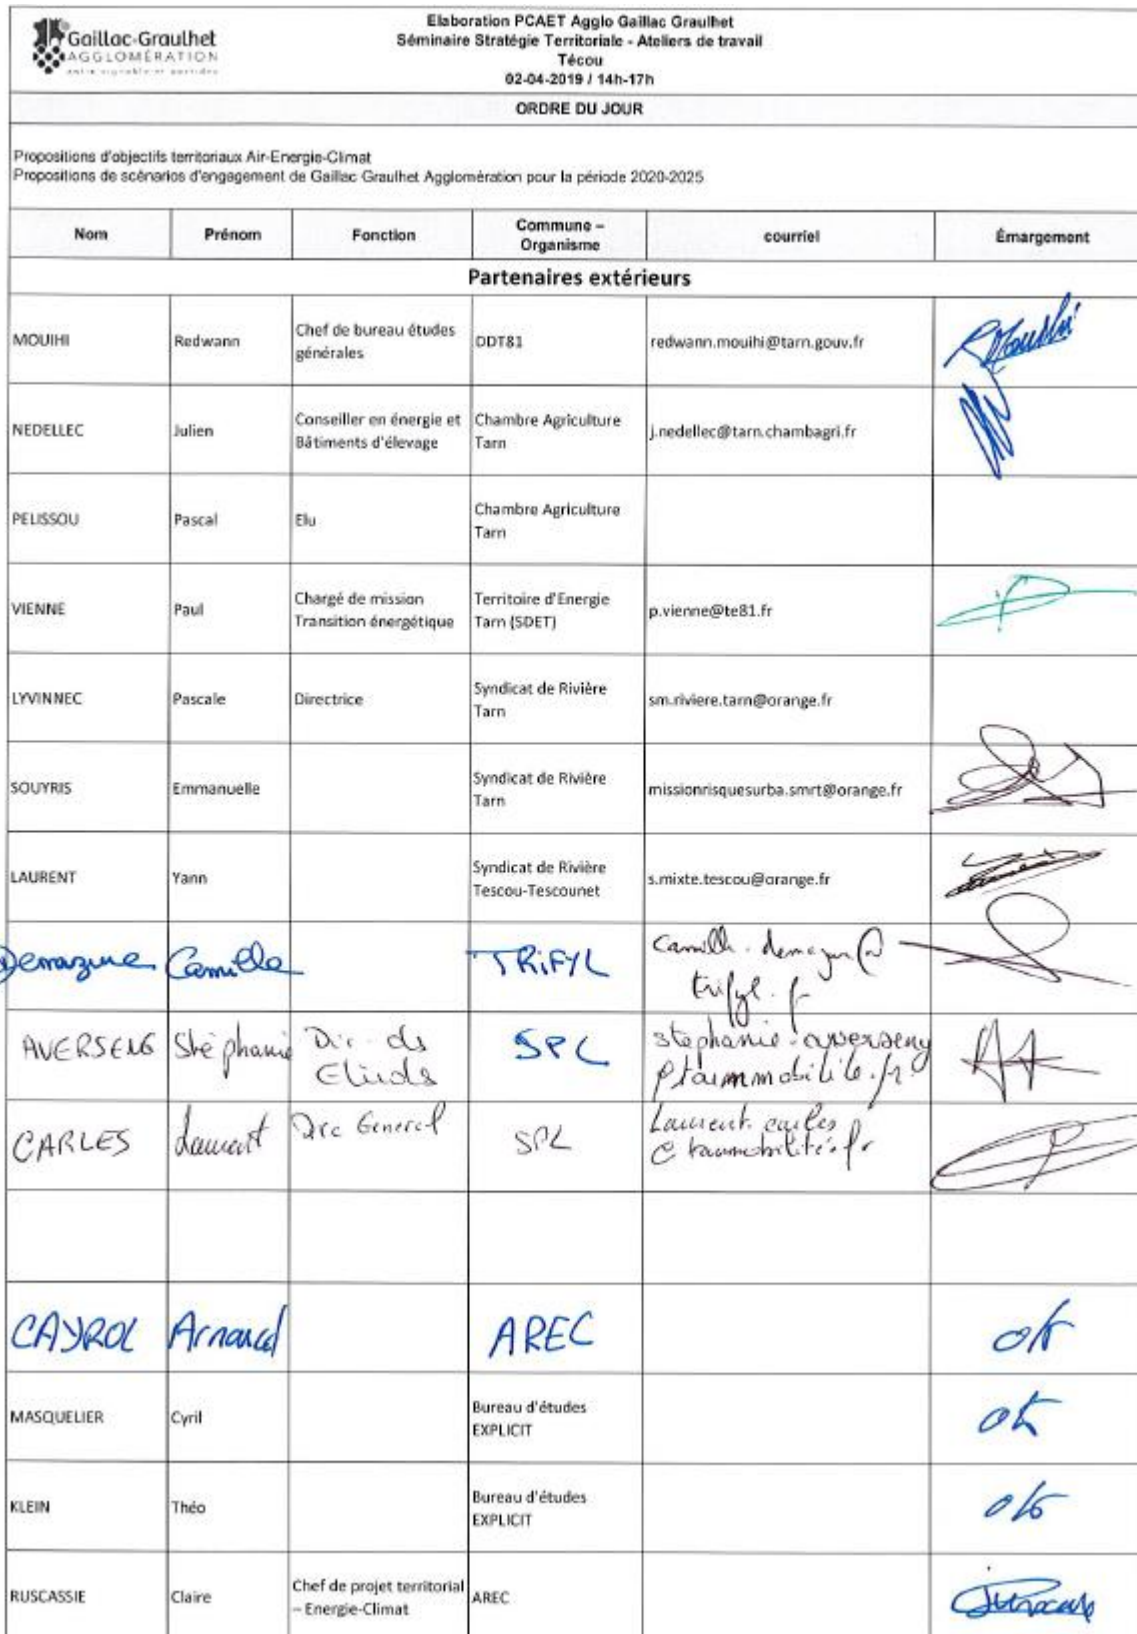 Gaillac-Graulhet
AGGLOMÉRATION
Elaboration PCAET Agglo Gaillac Graulhet
Séminaire Stratégie Territoriale - Ateliers de travail
Técou
02-04-2019 / 14h-17h
ORDRE DU JOUR
Propositions d'objectifs territoriaux Air-Energie-Climat
Propositions de scénarios d'engagement de Gaillac Graulhet Agglomération pour la période 2020-2025
Nom Prénom Fonction Commune – Organisme courriel Émargement
Partenaires extérieurs
MOUIHI Redwann Chef de bureau études générales DDT81 redwann.mouihi@tarn.gouv.fr
NEDELLEC Julien Conseiller en énergie et Bâtiments d'élevage Chambre Agriculture Tarn j.nedellec@tarn.chambagri.fr
PELISSOU Pascal Elu Chambre Agriculture Tarn
VIENNE Paul Chargé de mission Transition énergétique Territoire d'Energie Tarn (SDET) p.vienne@te81.fr
LYVINNEC Pascale Directrice Syndicat de Rivière Tarn sm.riviere.tarn@orange.fr
SOUYRIS Emmanuelle Syndicat de Rivière Tarn missionrisquesurba.smrt@orange.fr
LAURENT Yann Syndicat de Rivière Tescou-Tescounet s.mixte.tescou@orange.fr
Camille TRIFYL
AVERSENG Stéphanie SPL
CARLES Laurent Dir General SPL
CAYROL Arnaud AREC ok
MASQUELIER Cyril Bureau d'études EXPLICIT ok
KLEIN Théo Bureau d'études EXPLICIT ok
RUSCASSIE Claire Chef de projet territorial – Energie-Climat AREC